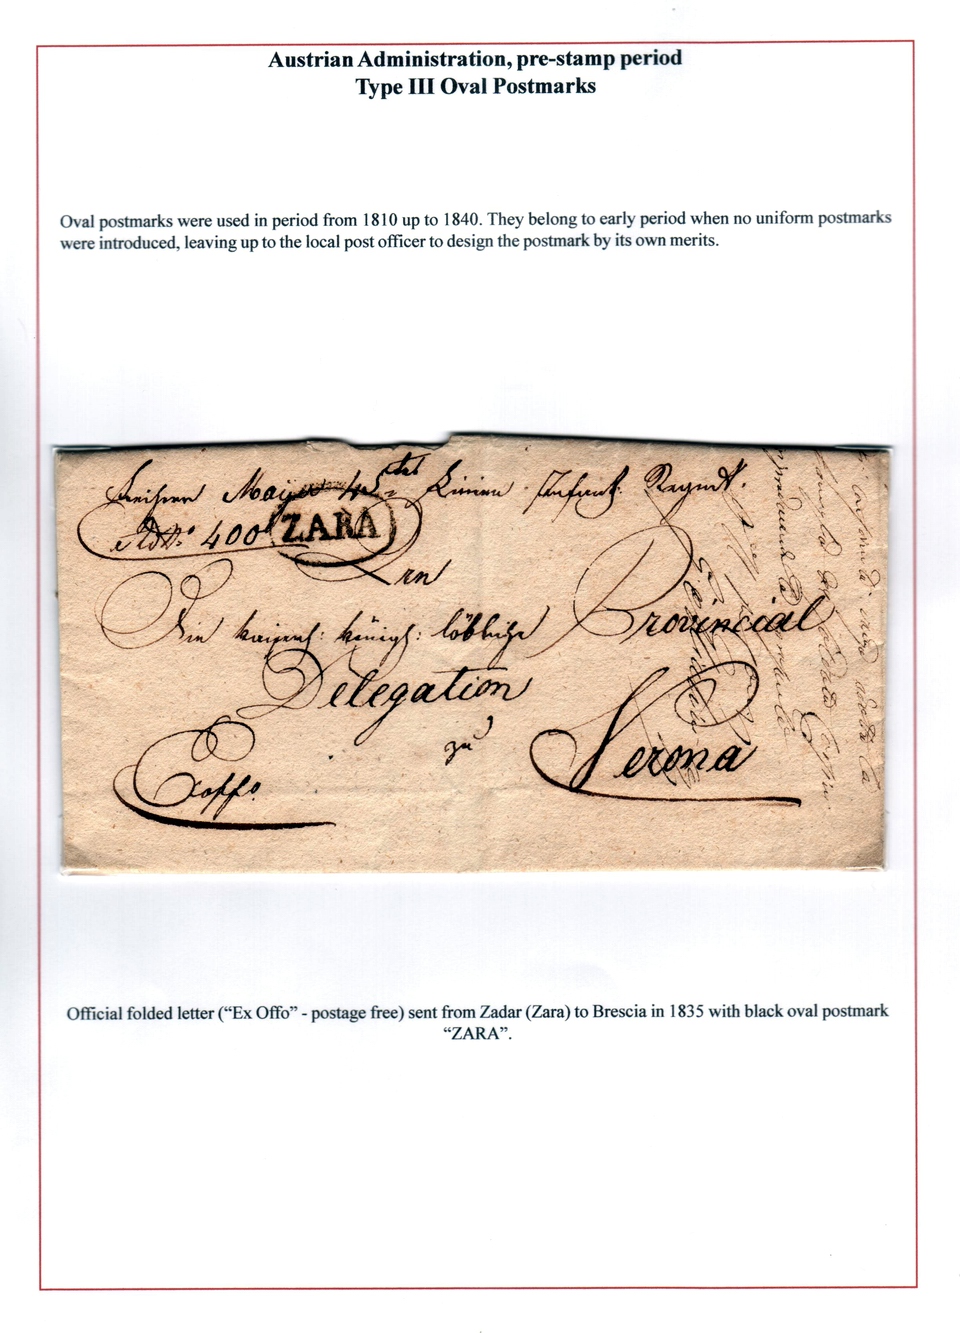 Austrian Administration, pre-stamp period
Type III Oval Postmarks
Oval postmarks were used in period from 1810 up to 1840. They belong to early period when no uniform postmarks
were introduced, leaving up to the local post officer to design the postmark by its own merits.
Freiherr Mayer 45 Linien Infant. Regmt.
400
ZARA
An
Ein kaiserl: königl: löbliche Provincial
Delegation
zu
Verona
Exoffo.
Official folded letter (“Ex Offo” - postage free) sent from Zadar (Zara) to Brescia in 1835 with black oval postmark
“ZARA”.